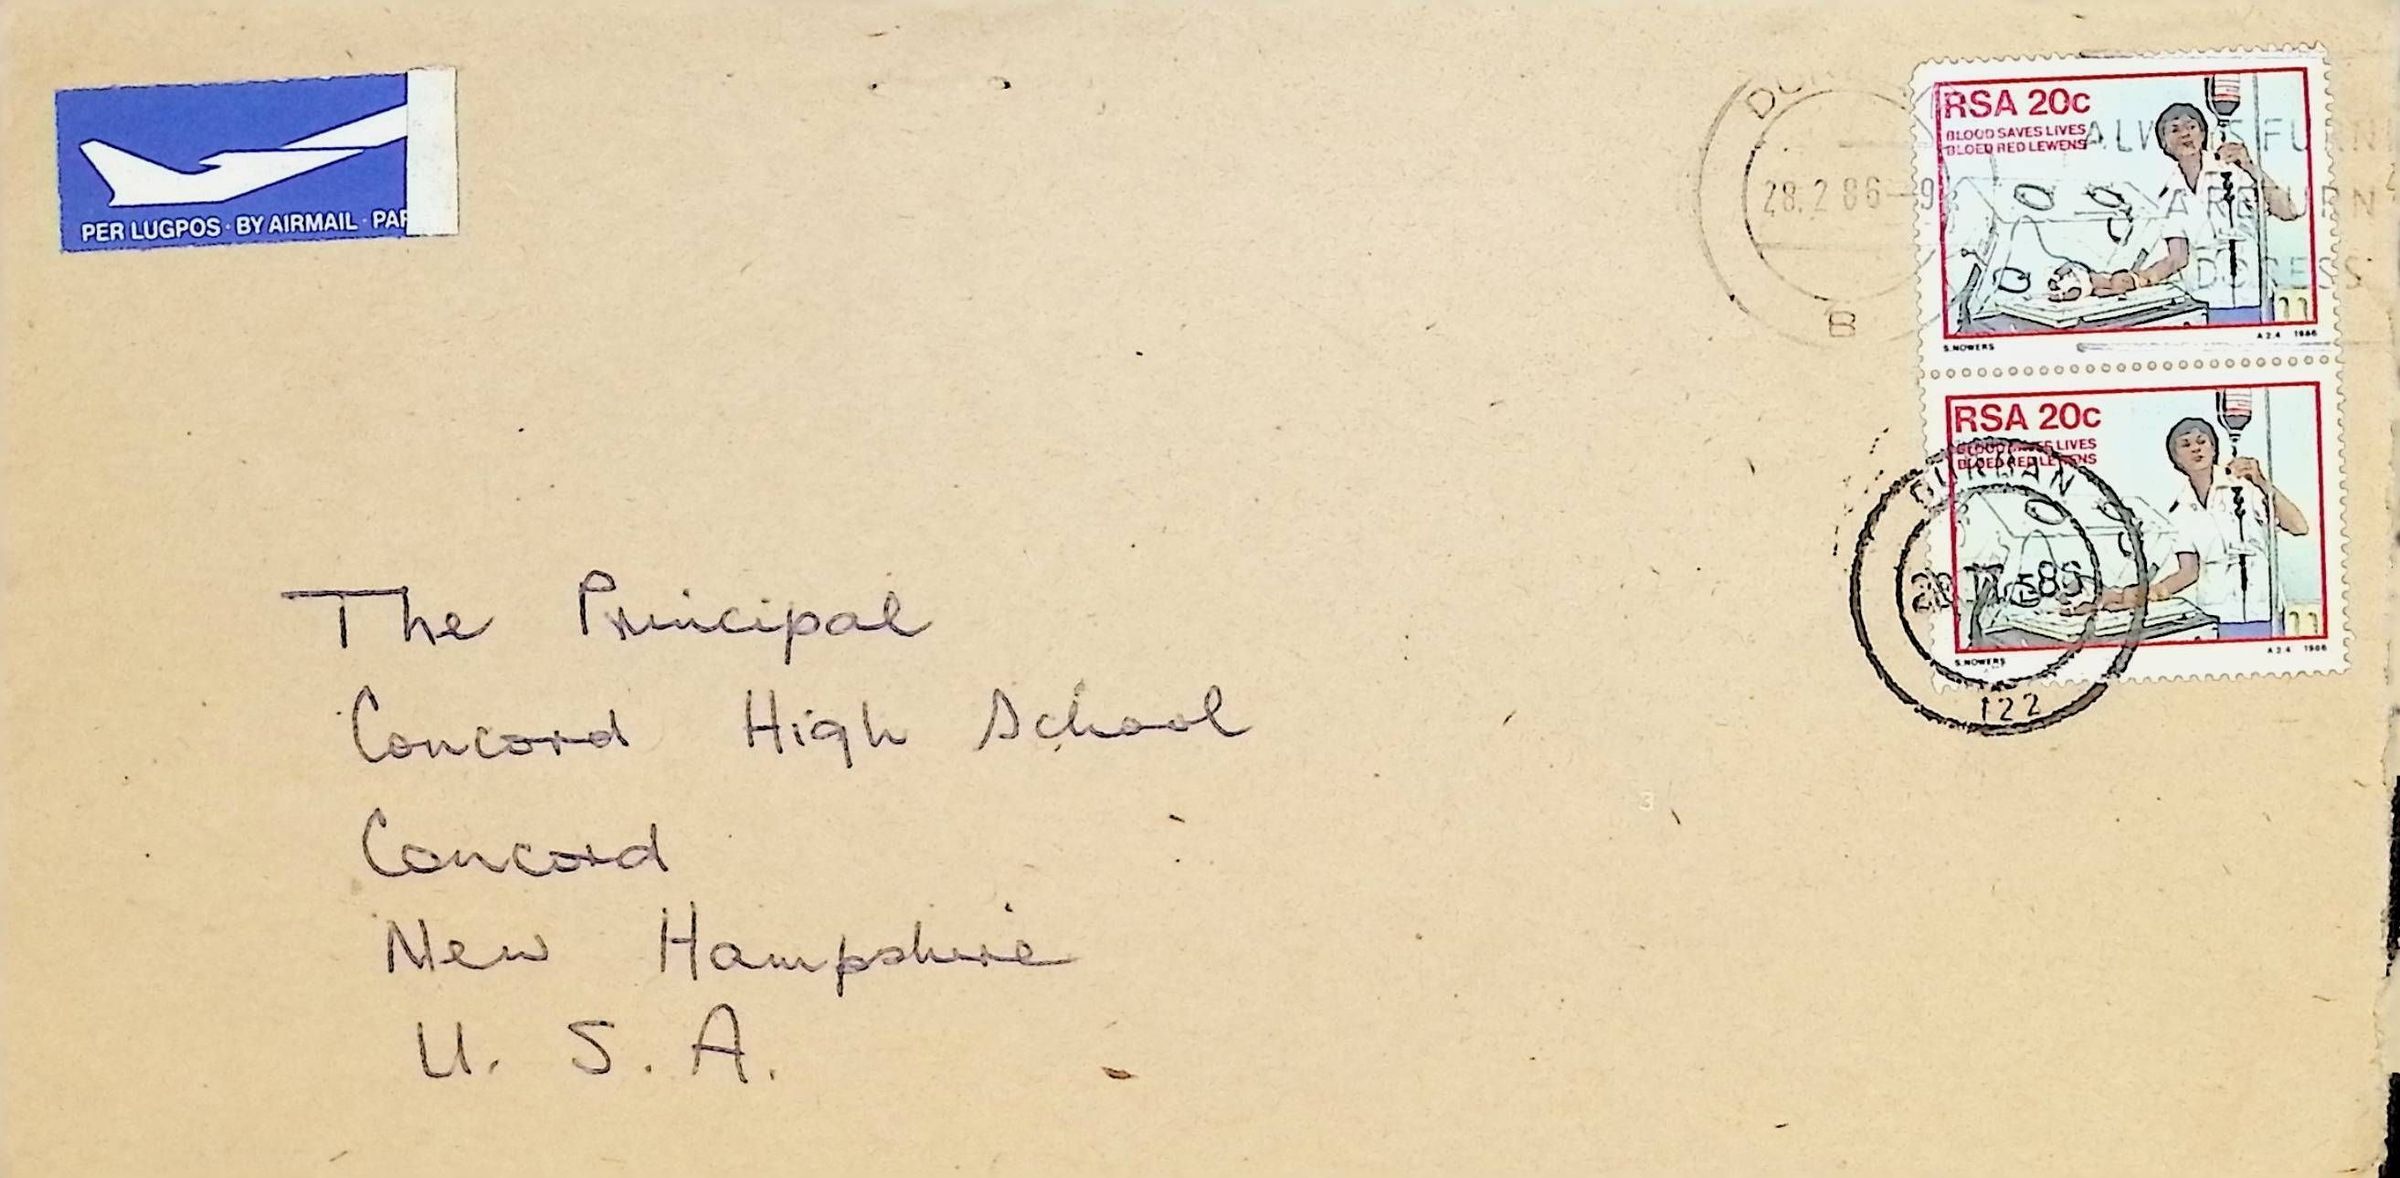 PER LUGPOS · BY AIRMAIL · PAR
28.2.86-9
B
ALWAYS FURN
A RETURN
ADDRESS
RSA 20c
BLOOD SAVES LIVES
BLOED RED LEWENS
S. NOWERS
A 2.4 1986
RSA 20c
BLOOD SAVES LIVES
BLOED RED LEWENS
S. NOWERS
A 2.4 1986
DURBAN
122
The Principal
Concord High School
Concord
New Hampshire
U. S. A.